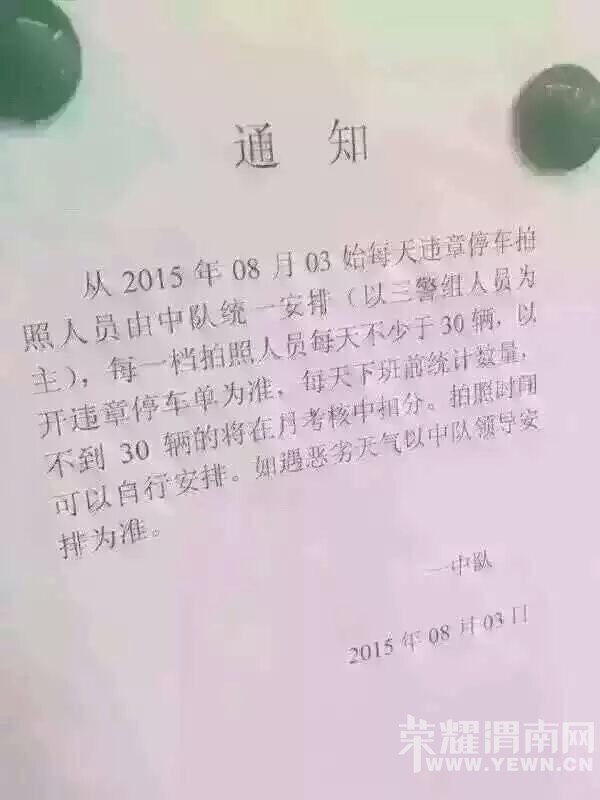 通 知
从 2015 年 08 月 03 始每天违章停车拍
照人员由中队统一安排（以三警组人员为
主），每一档拍照人员每天不少于 30 辆，以
开违章停车单为准，每天下班前统计数量，
不到 30 辆的将在月考核中扣分。拍照时间
可以自行安排。如遇恶劣天气以中队领导安
排为准。
一中队
2015 年 08 月 03 日
荣耀渭南网
WWW.YEWN.CN